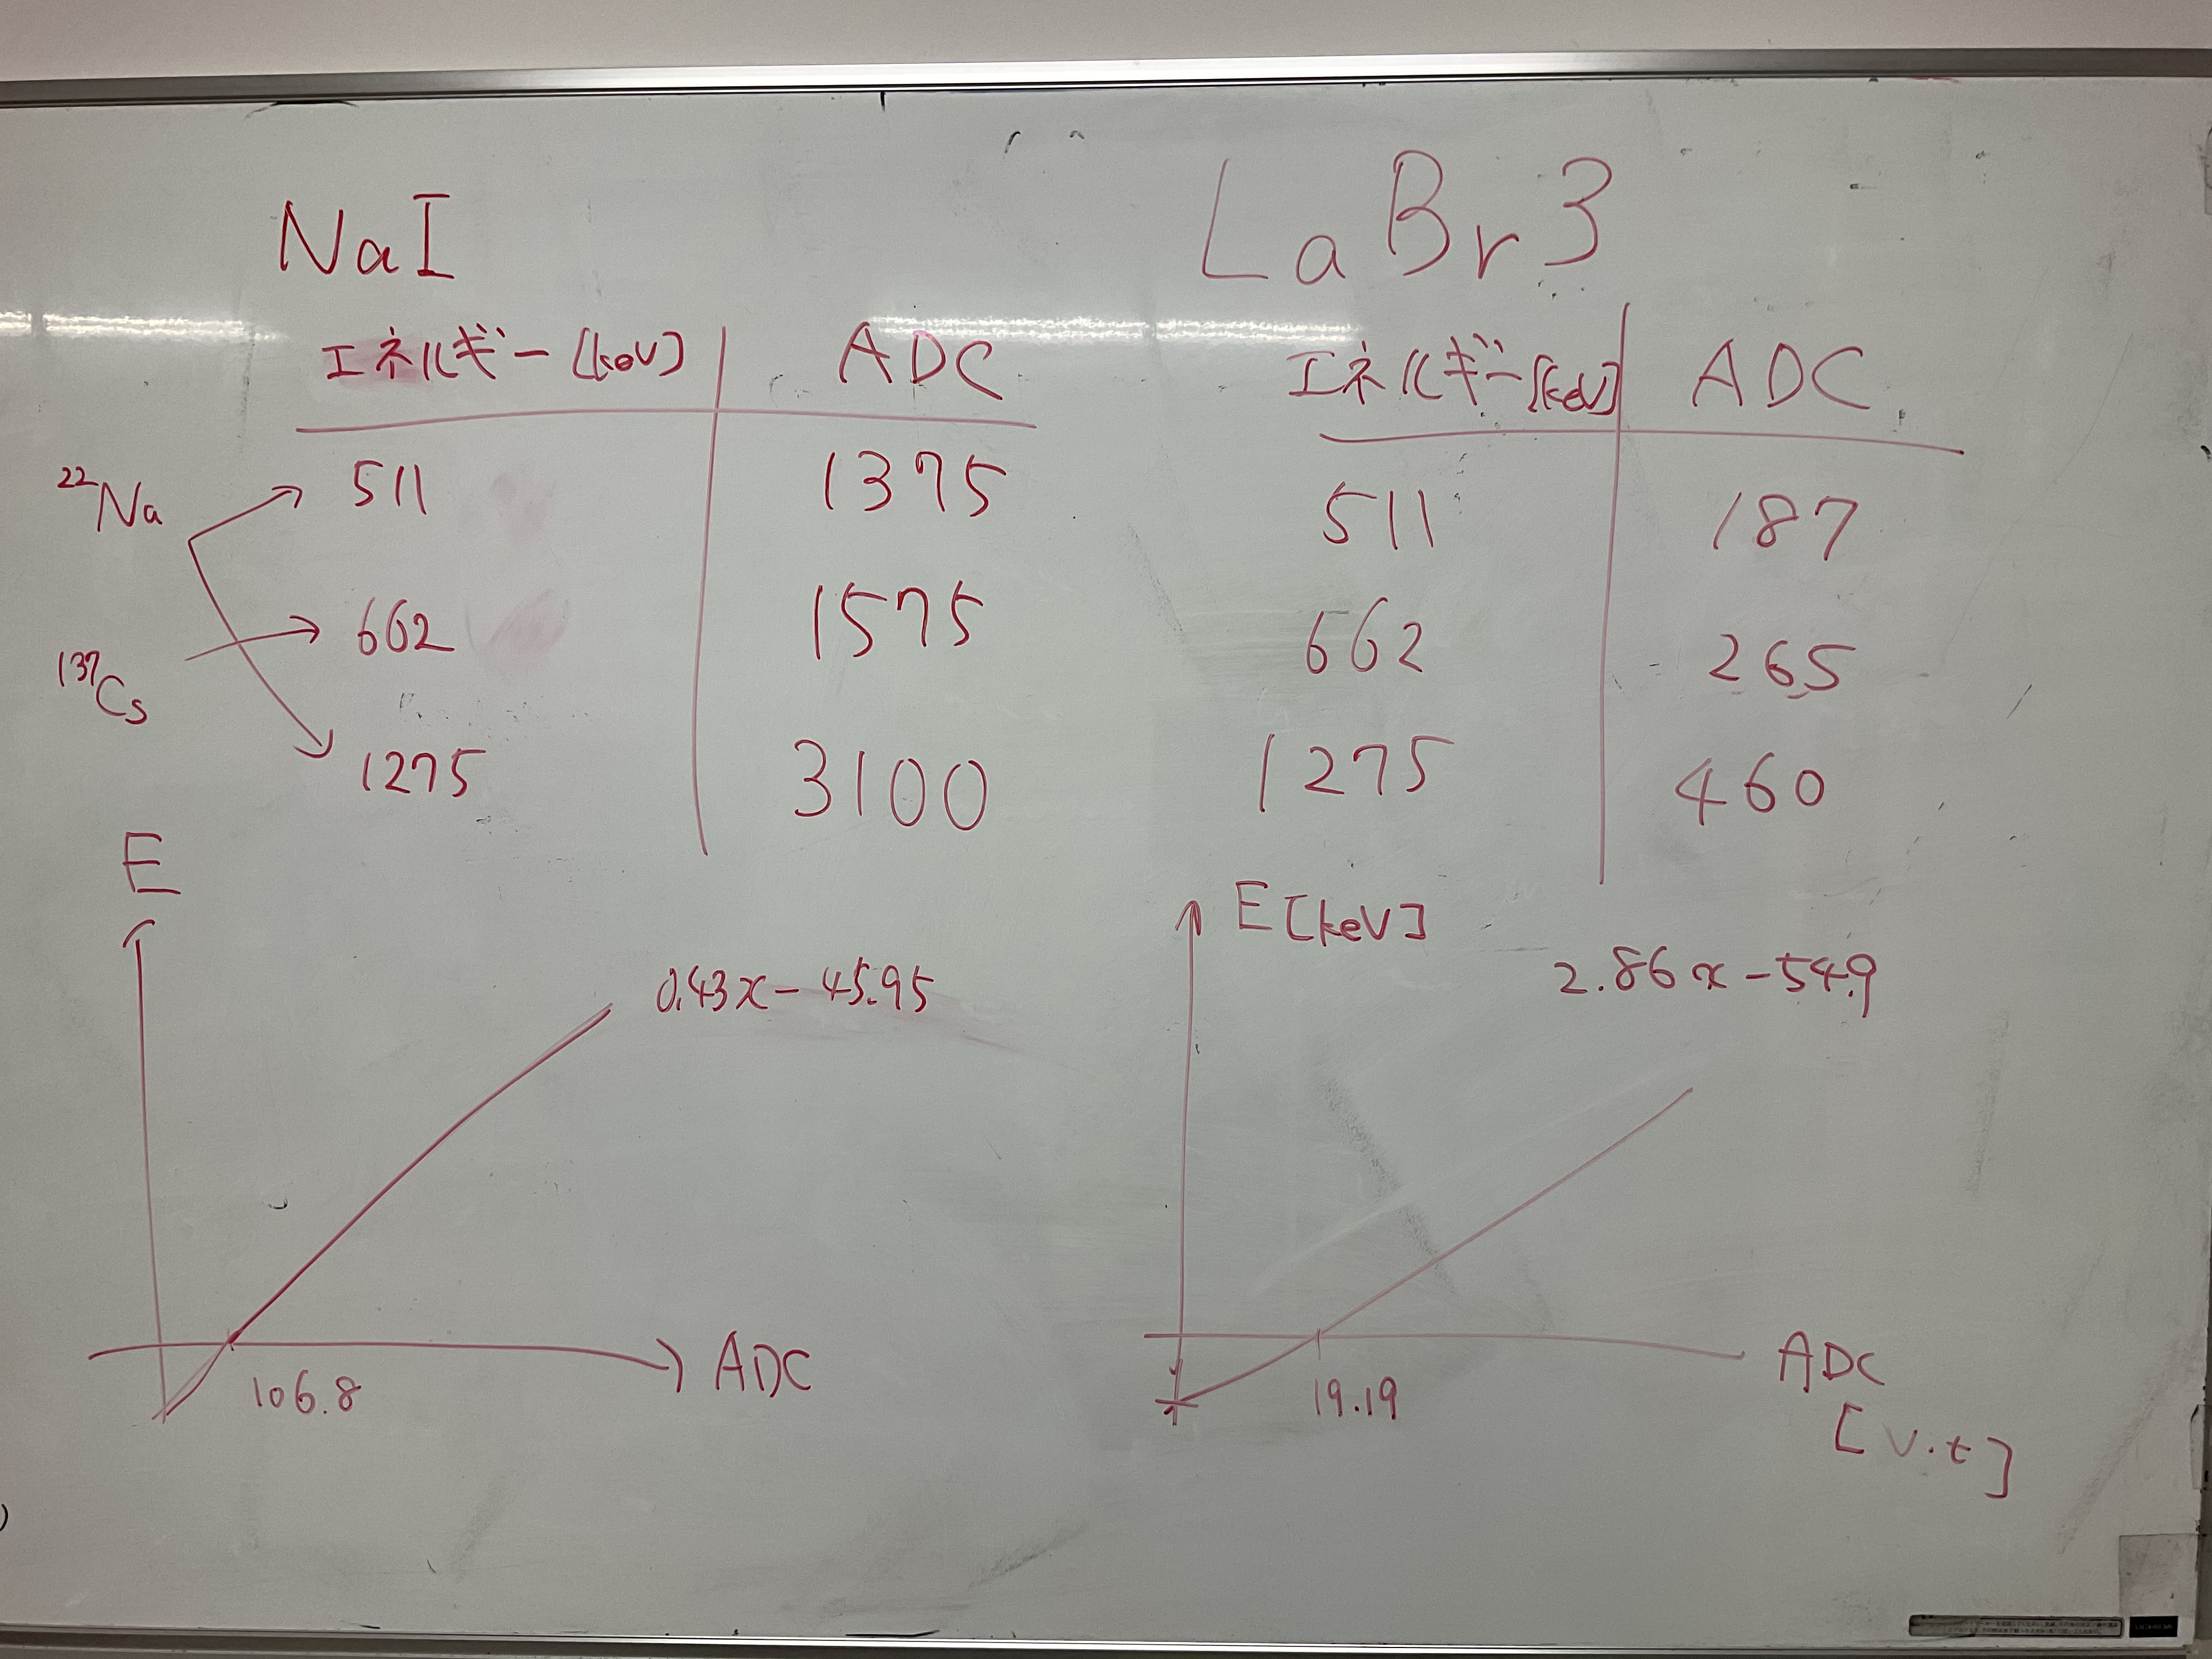 NaI
エネルギー [keV] ADC
22Na 511 1375
137Cs 662 1575
1275 3100
E
0.43x - 45.95
106.8
ADC
LaBr3
エネルギー [keV] ADC
511 187
662 265
1275 460
E [keV]
2.86x - 54.9
19.19
ADC
[v.t]